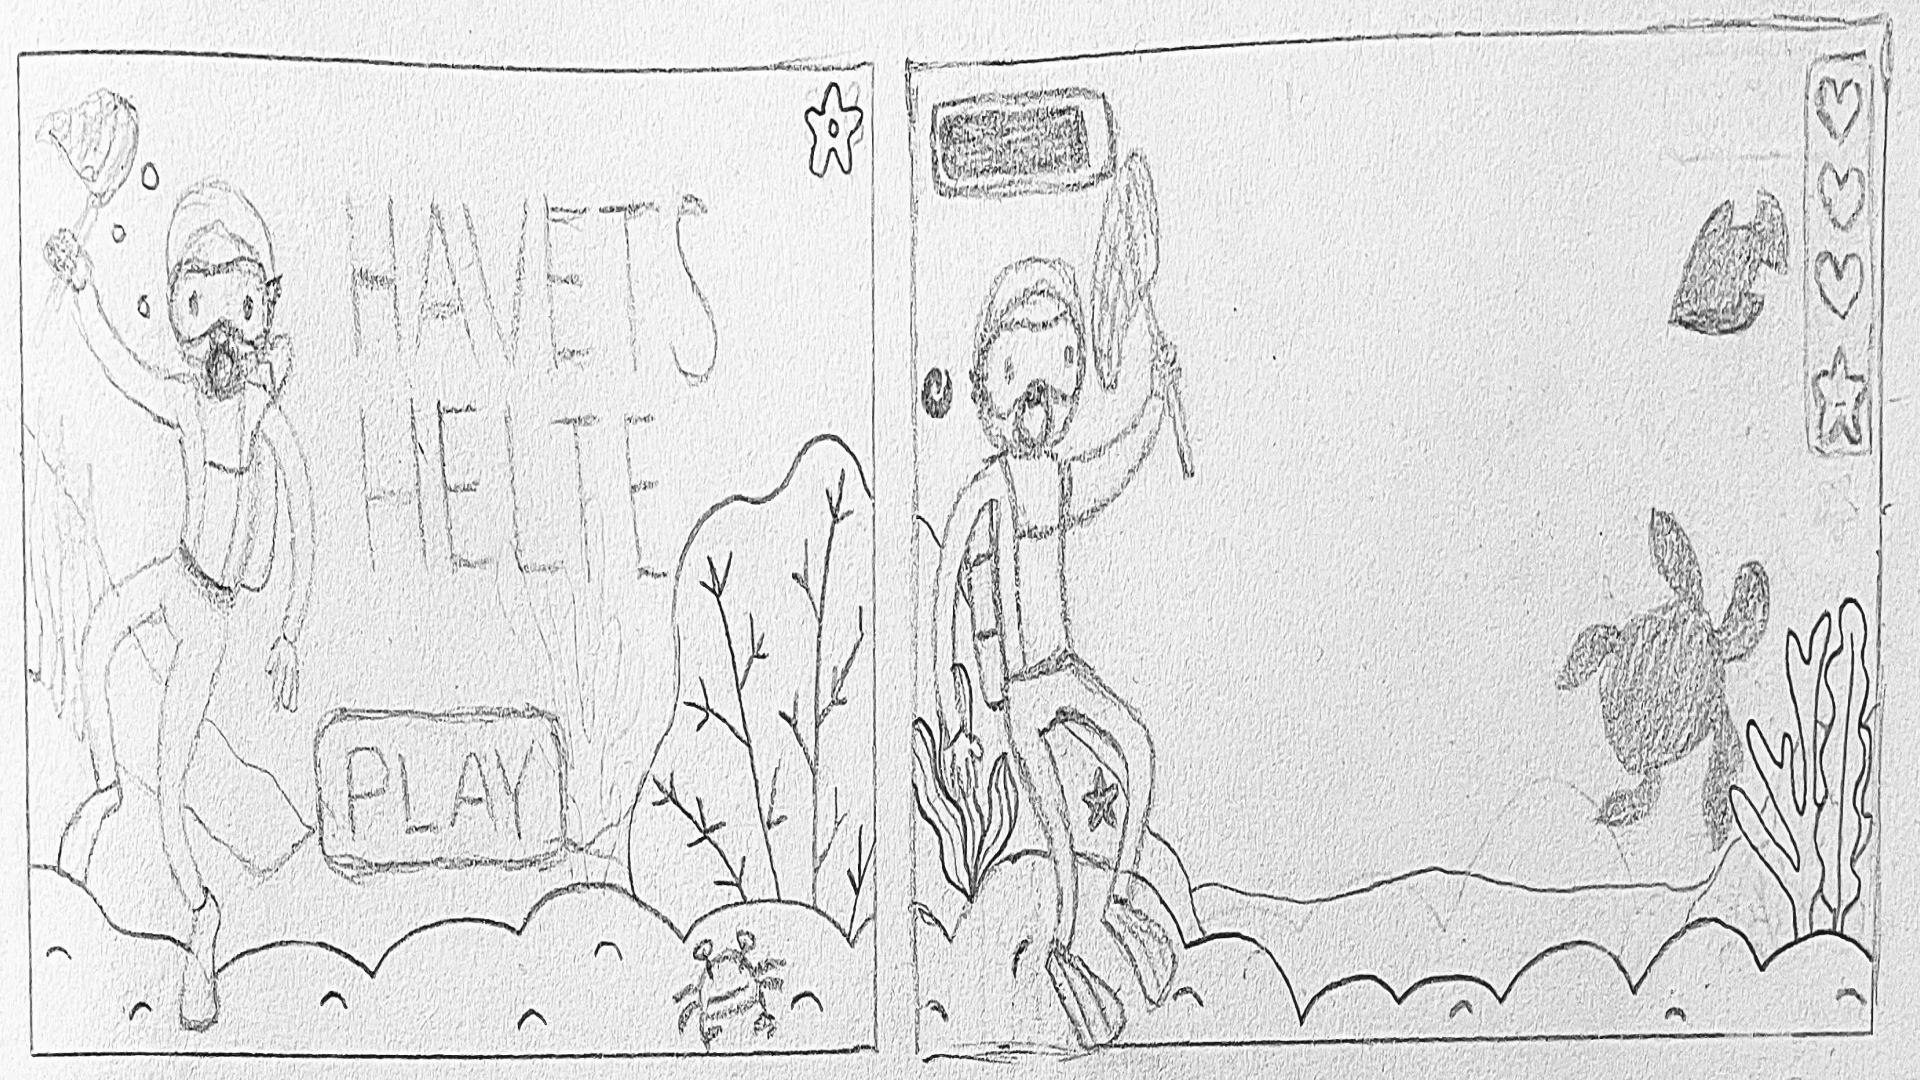 HAVETS
HELTE
PLAY